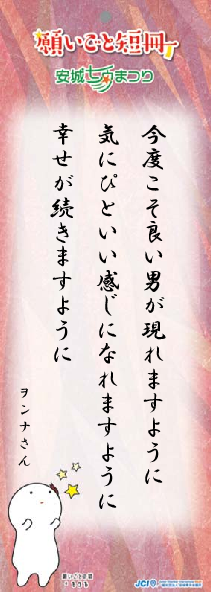 願いごと短冊
安城七夕まつり
今度こそ良い男が現れますように
気にぴといい感じになれますように
幸せが続きますように
ヲンナさん
願いごと短冊
JCI